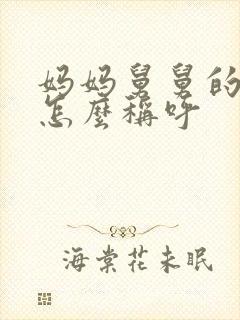 妈妈舅舅的
怎麼稱呼
海棠花未眠